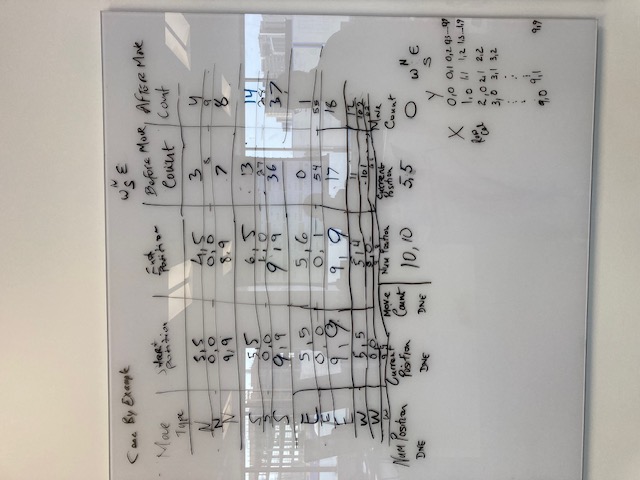 Case By Example
N
W S E
Move Type | Start Position | End Position | Before Move Count | AFTER Move Count
N | 5,5 | 4,5 | 3 | 4
N | 0,0 | 0,0 | 8 | 9
N | 9,9 | 8,9 | 7 | 8
S | 5,5 | 6,5 | 13 | 14
S | 0,0 | 1,0 | 27 | 28
S | 9,9 | 9,9 | 36 | 37
E | 5,5 | 5,6 | 0 | 1
E | 0,0 | 0,1 | 54 | 55
E | 9,9 | 9,9 | 17 | 18
W | 5,5 | 5,4 | 11 | 12
W | 0,0 | 0,0 | 101 | 102
W
Num Position | Current Position | Move Count | Num Position | Current Position | Move Count
DNE | DNE | DNE | 10,10 | 5,5 | 0
N
W E
S
Y
X 0,0 0,1 0,2
Row Col 1,0 1,1 1,2
2,0 2,1 2,2
3,0 3,1 3,2
9,0 9,1 9,9